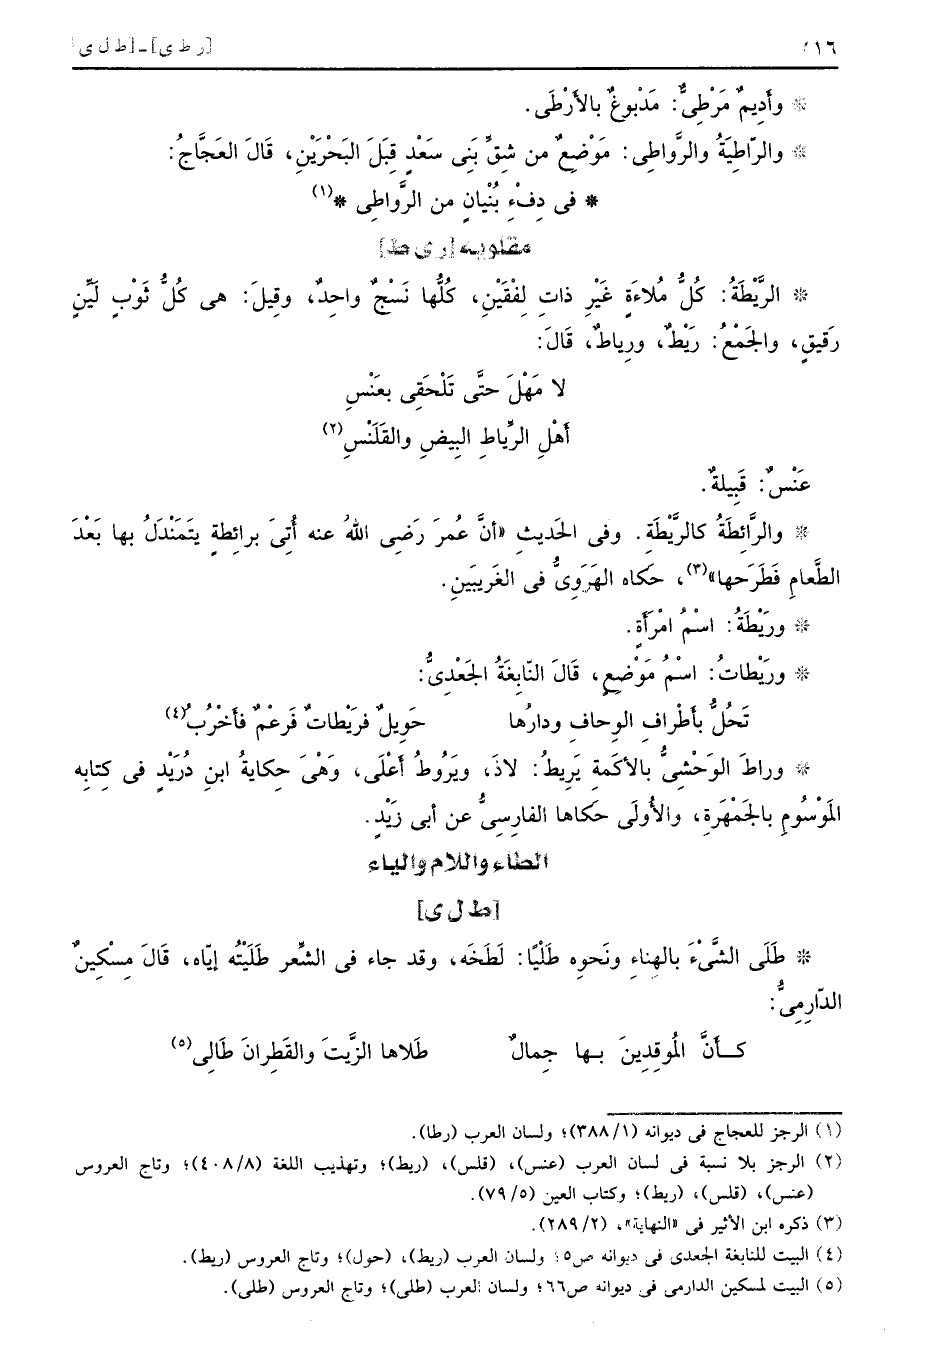 ٢١٦ [ر ط ى] ـ [ط ل ى]
* وأَدِيمٌ مَرْطِىٌّ: مَدْبوغٌ بالأَرْطَى.
* والرّاطِيَةُ والرَّواطِى: مَوْضِعٌ من شِقِّ بَنِى سَعْدٍ قِبَلَ البَحْرَيْنِ، قَالَ العَجَّاجُ:
* فى دِفْءِ بُنْيانٍ من الرَّواطِى *(١)
مقلوبه [ر ى ط]
* الرَّيْطَةُ: كُلُّ مُلاءَةٍ غَيْرِ ذاتِ لِفْقَيْنِ، كُلُّها نَسْجٌ واحِدٌ، وقِيلَ: هى كُلُّ ثَوْبٍ لَيِّنٍ
رَقيقٍ، والجَمْعُ: رَيْطٌ، ورِياطٌ، قَالَ:
لا مَهْلَ حتَّى تَلْحَقِى بعَنْسِ
أَهْلِ الرِّياطِ البِيضِ والقَلَنْسِ(٢)
عَنْسٌ: قَبِيلةٌ.
* والرَّائطَةُ كالرَّيْطَةِ. وفى الحَديثِ «أنَّ عُمرَ رَضِى اللهُ عنه أُتِىَ برائطةٍ يتَمَنْدَلُ بها بَعْدَ
الطَّعامِ فَطَرَحها»(٣)، حكاه الهَرَوِىُّ فى الغَريبَينِ.
* ورَيْطَةُ: اسْمُ امْرَأَةٍ.
* ورَيْطاتُ: اسْمُ مَوْضِعٍ، قَالَ النّابِغَةُ الجَعْدِىُّ:
تَحُلُّ بأَطْرافِ الوِحافِ ودارُها حَوِيلٌ فرَيْطاتٌ فَرعْمٌ فأَخْرُبُ(٤)
* وراطَ الوَحْشِىُّ بالأكَمةِ يَرِيطُ: لاذَ، ويَرُوطُ أَعْلَى، وَهْىَ حِكايةُ ابنِ دُرَيْدٍ فى كِتابِه
المَوْسُومِ بالجَمْهَرَةِ، والأُولَى حكاها الفارِسِىُّ عن أبى زَيْدٍ.
الطاء واللام والياء
[ط ل ى]
* طَلَى الشَّىْءَ بالهِناءِ ونَحوِه طَلْيًا: لَطَخَه، وقد جاء فى الشِّعرِ طَلَيْتُه إيّاه، قَالَ مِسْكينٌ
الدّارِمِىُّ:
كـأنَّ المُوقِدِينَ بـها جِمالٌ طَلاها الزَّيتَ والقَطِرانَ طَالِى(٥)
(١) الرجز للعجاج فى ديوانه (٣٨٨/١)؛ ولسان العرب (رطا).
(٢) الرجز بلا نسبة فى لسان العرب (عنس)، (قلس)، (ريط)؛ وتهذيب اللغة (٤٠٨/٨)؛ وتاج العروس
(عنس)، (قلس)، (ريط)؛ وكتاب العين (٧٩/٥).
(٣) ذكره ابن الأثير فى «النهاية»، (٢٨٩/٢).
(٤) البيت للنابغة الجعدى فى ديوانه ص٥؛ ولسان العرب (ريط)، (حول)؛ وتاج العروس (ريط).
(٥) البيت لمسكين الدارمى فى ديوانه ص٦٦؛ ولسان العرب (طلى)؛ وتاج العروس (طلى).